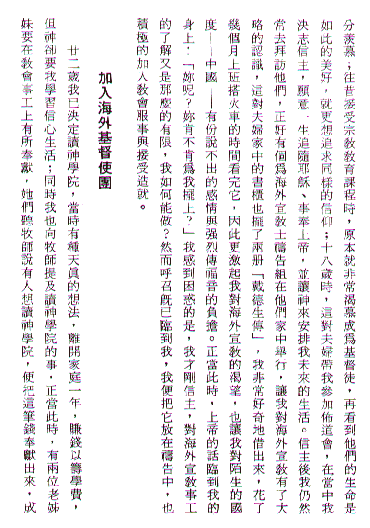 分羨慕；往昔接受宗教教育課程時，原本就非常渴慕成爲基督徒，再看到他們的生命是
如此的美好，就更想追求同樣的信仰；十八歲時，這對夫婦帶我參加佈道會，在當中我
決志信主，願意一生追隨耶穌、事奉上帝，並讓神來安排我未來的生活。信主後我仍然
常去拜訪他們，正好有個爲海外宣教士禱告組在他們家中舉行，讓我對海外宣教有了大
略的認識，這對夫婦家中的書櫃也擺了兩册「戴德生傳」，我非常好奇地借出來，花了
幾個月上班搭火車的時間看完它，因此更激起我對海外宣教的渴望，也讓我對陌生的國
度——中國——有份說不出的感情與强烈傳福音的負擔。正當此時，上帝的話臨到我的
身上：「妳呢？妳肯不肯爲我擺上？」我感到因惑的是，我才剛信主，對海外宣敎事工
的了解又是那麽的有限，我如何能做？然而呼召既已臨到我，我便把它放在禱告中，也
積極的加入教會服事與接受造就。
加入海外基督使團
廿二歲我已決定讀神學院，當時有種天眞的想法，離開家庭一年，賺錢以籌學費，
但神卻要我學習信心生活；同時我也向牧師提及讀神學院的事，正當此時，有兩位老姊
妹要在敎會事工上有所奉獻，她們聽牧師說有人想讀神學院，便把這筆錢奉獻出來，成